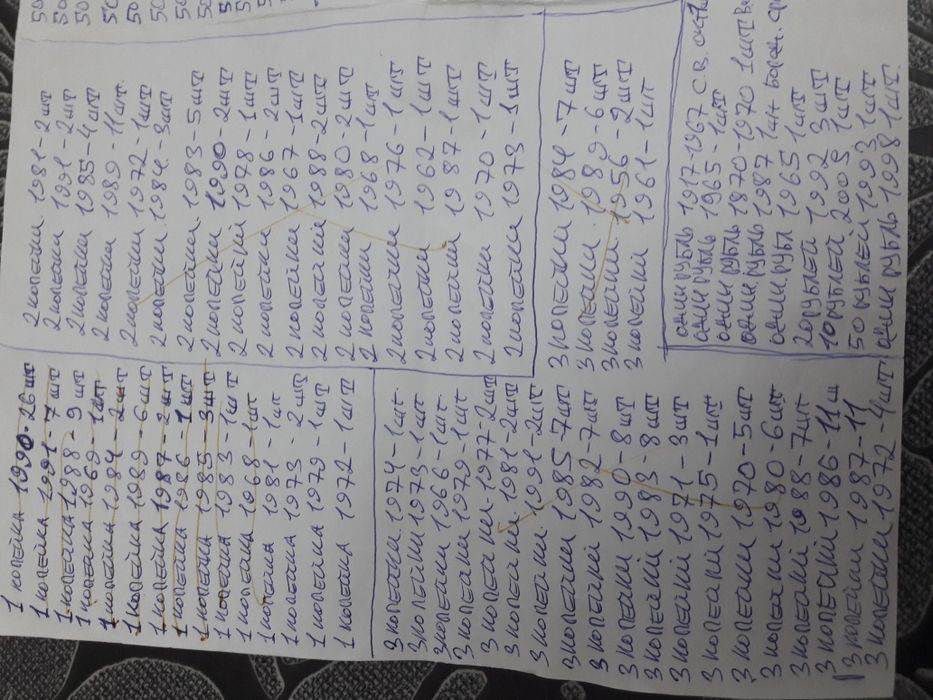 1 копейка 1990 - 26 шт
1 копейка 1991 - 7 шт
1 копейка 1988 - 9 шт
1 копейка 1969 - 1шт
1 копейка 1984 - 2шт
1 копейка 1989 - 6шт
1 копейка 1987 - 2шт
1 копейка 1986 - 1шт
1 копейка 1985 - 3шт
1 копейка 1983 - 1шт
1 копейка 1968 - 1шт
1 копейка 1981 - 1шт
1 копейка 1973 - 2шт
1 копейка 1979 - 1шт
1 копейка 1972 - 1шт
2 копейки 1981 - 2шт
2 копейки 1991 - 2шт
2 копейки 1985 - 4шт
2 копейки 1989 - 11шт
2 копейки 1972 - 1шт
2 копейки 1984 - 3шт
2 копейки 1983 - 5шт
2 копейки 1990 - 2шт
2 копейки 1978 - 1шт
2 копейки 1986 - 2шт
2 копейки 1967 - 1шт
2 копейки 1988 - 2шт
2 копейки 1980 - 2шт
2 копейки 1968 - 1шт
2 копейки 1976 - 1шт
2 копейки 1962 - 1шт
2 копейки 1987 - 1шт
2 копейки 1970 - 1шт
2 копейки 1973 - 1шт
3 копейки 1974 - 1шт
3 копейки 1973 - 1шт
3 копейки 1966 - 1шт
3 копейки 1979 - 1шт
3 копейки - 1977 - 2шт
3 копейки 1981 - 2шт
3 копейки 1991 - 2шт
3 копейки 1985 - 7шт
3 копейки 1982 - 7шт
3 копейки 1990 - 8шт
3 копейки 1983 - 8шт
3 копейки 1971 - 3шт
3 копейки 1975 - 1шт
3 копейки 1970 - 5шт
3 копейки 1980 - 6шт
3 копейки 1988 - 7шт
3 копейки 1986 - 11ш
3 копейки 1987 - 11
3 копейки 1972 4шт
3 копейки 1984 - 7шт
3 копейки 1989 - 6шт
3 копейки 1956 - 2шт
3 копейки 1961 - 1шт
один рубль 1917-1967 с.в.
один рубль 1965 - 1шт
один рубль 1870-1970 1шт
один рубль 1987 1шт
один рубл 1965 1шт
20 рублей 1992 3шт
10 рублей 2009 1шт
50 рублей 1993 1шт
один рубль 1998 1шт
50
50
50
50
50
50
50
50